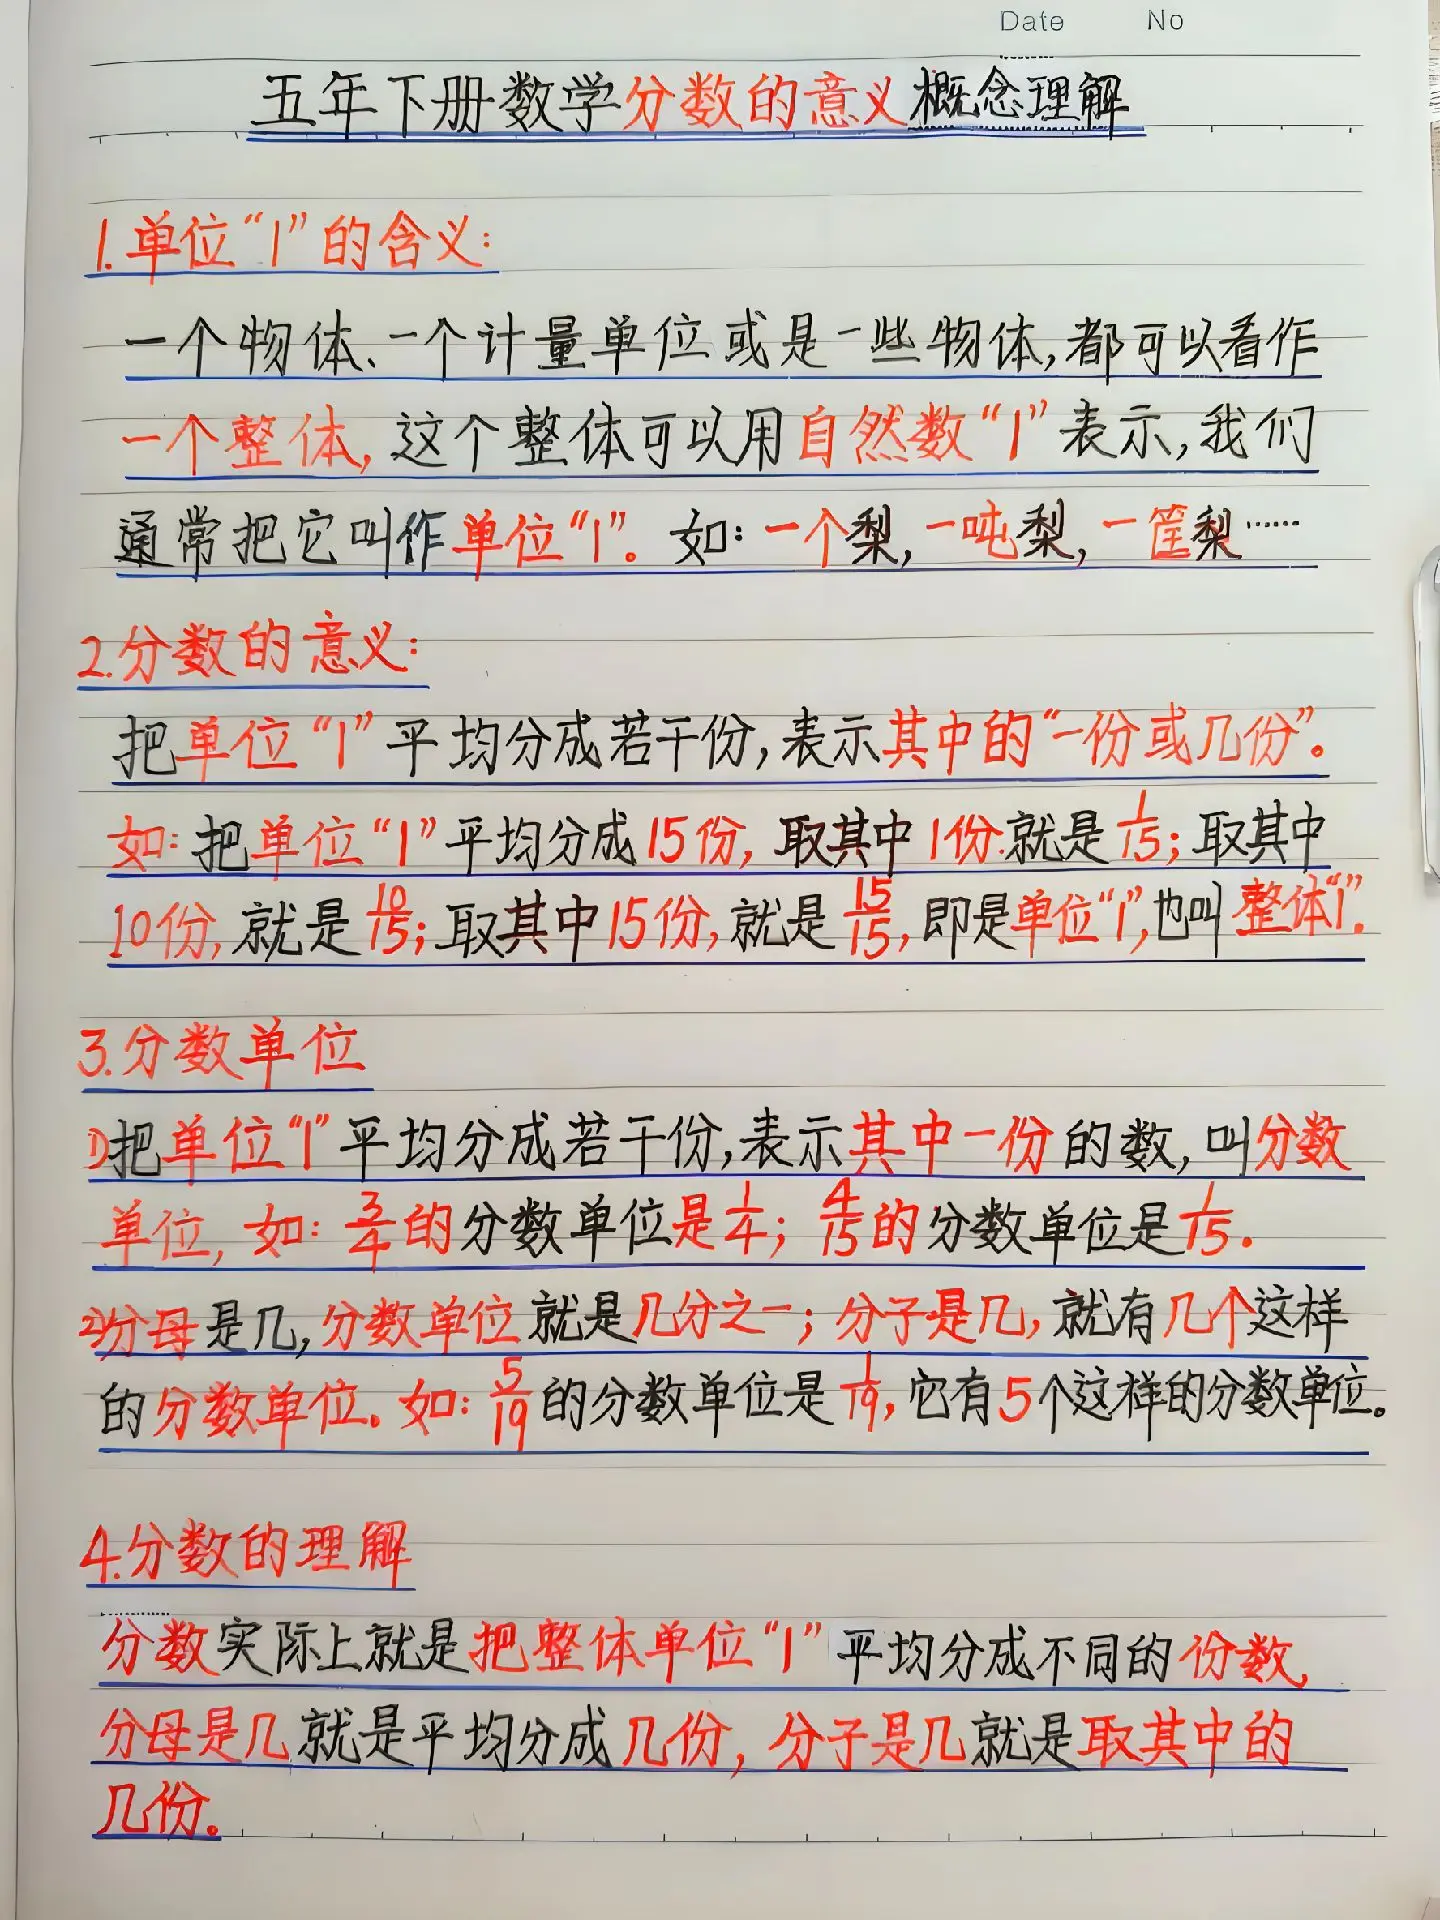 Date No
五年下册数学分数的意义概念理解
1.单位“1”的含义：
一个物体、一个计量单位或是一些物体，都可以看作
一个整体，这个整体可以用自然数“1”表示，我们
通常把它叫作单位“1”。如：一个梨，一吨梨，一筐梨……
2.分数的意义：
把单位“1”平均分成若干份，表示其中的“一份或几份”。
如：把单位“1”平均分成15份，取其中1份.就是1/15；取其中
10份，就是10/15；取其中15份，就是15/15，即是单位“1”，也叫整体“1”.
3.分数单位
1)把单位“1”平均分成若干份，表示其中一份的数，叫分数
单位，如：3/4的分数单位是1/4；4/15的分数单位是1/15.
2)分母是几，分数单位就是几分之一；分子是几，就有几个这样
的分数单位。如：5/19的分数单位是1/19，它有5个这样的分数单位。
4.分数的理解
分数实际上就是把整体单位“1”平均分成不同的份数，
分母是几就是平均分成几份，分子是几就是取其中的
几份。